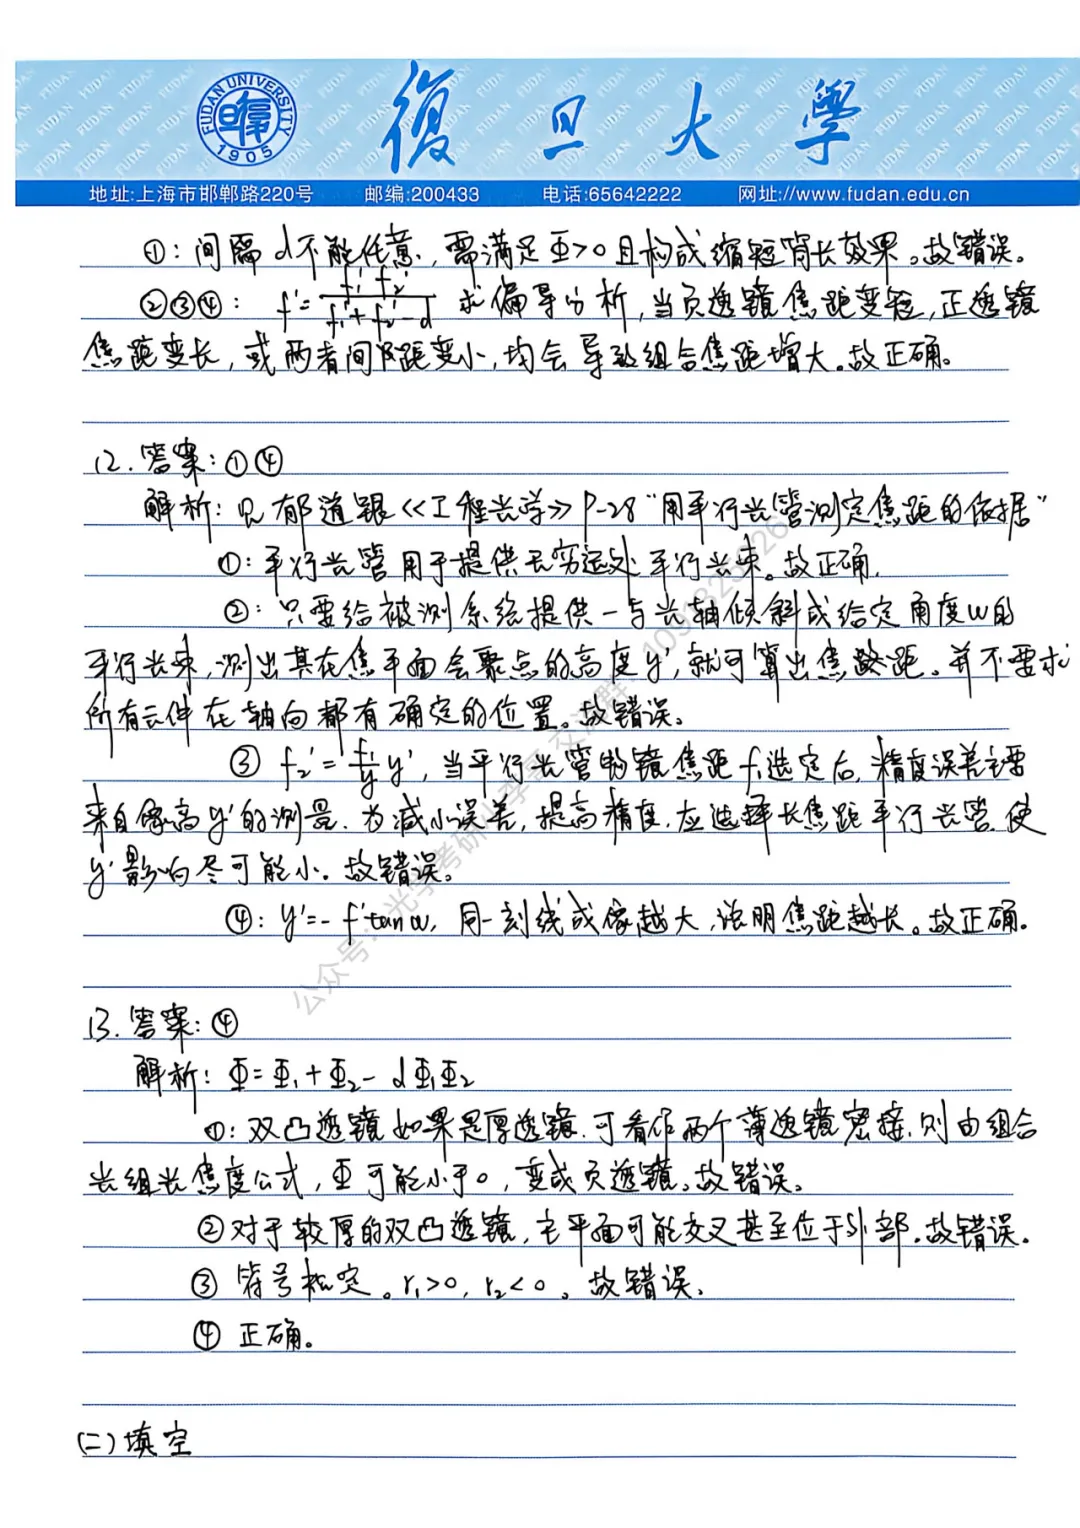 FUDAN UNIVERSITY
1905
復旦大學
地址:上海市邯郸路220号 邮编:200433 电话:65642222 网址://www.fudan.edu.cn
①:间隔d不能任意,需满足Φ>0且构成缩短筒长效果。故错误。
②③④: f'=f₁'f₂'/(f₁'+f₂'-d) 求偏导分析,当负透镜焦距变短,正透镜
焦距变长,或两者间距变小,均会导致组合焦距增大。故正确。
12.答案:①④
解析:见郁道银《工程光学》P-28“用平行光管测定焦距的依据”
①:平行光管用于提供无穷远处平行光束。故正确.
②:只要给被测系统提供一与光轴倾斜成给定角度w的
平行光束,测出其在焦平面会聚点的高度y',就可算出焦距。并不要求
所有元件在轴向都有确定的位置。故错误。
③ f₂'=f₁'/y y',当平行光管物镜焦距f₁选定后,精度误差主要
来自像高y'的测量.为减小误差,提高精度,应选择长焦距平行光管,使
y'影响尽可能小。故错误。
④:y'=-f'tanω,同一刻线成像越大,说明焦距越长。故正确。
公众号:光学考研小李哥 交流群
13.答案:④
解析:Φ=Φ₁+Φ₂-dΦ₁Φ₂
①:双凸透镜如果是厚透镜.可看作两个薄透镜密接,则由组合
光组光焦度公式,Φ可能小于0,变成负透镜。故错误。
②对于较厚的双凸透镜,主平面可能交叉甚至位于外部。故错误。
③ 符号规定。r₁>0,r₂<0。故错误。
④ 正确。
(二)填空